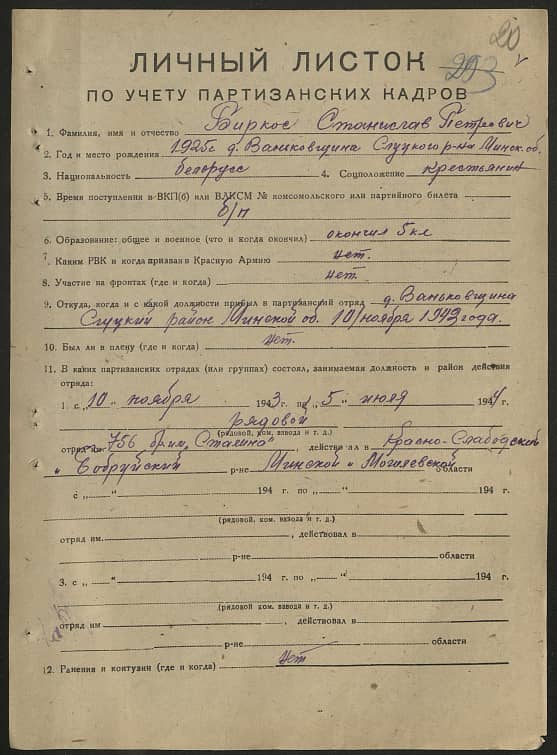 20
203
ЛИЧНЫЙ ЛИСТОК
ПО УЧЕТУ ПАРТИЗАНСКИХ КАДРОВ
1. Фамилия, имя и отчество Биркос Станислав Петрович
2. Год и место рождения 1925г д. Ваньковщина Слуцкого р-на Минск. об.
3. Национальность белорусс 4. Соцположение крестьянин
5. Время поступления в ВКП(б) или ВЛКСМ № комсомольского или партийного билета
б/п
6. Образование: общее и военное (что и когда окончил) окончил 5 кл
7. Каким РВК и когда призван в Красную Армию нет.
8. Участие на фронтах (где и когда) нет.
9. Откуда, когда и с какой должности прибыл в партизанский отряд д. Ваньковщина
Слуцкий район Минской об. 10/ноября 1943 года.
10. Был ли в плену (где и когда) нет.
11. В каких партизанских отрядах (или группах) состоял, занимаемая должность и район действия
отряда:
1. с „10“ ноября 1943 г. по „5“ июля 1944
рядовой
(рядовой, ком. взвода и т. д.)
отряд 756 бр. им. Сталина", действовал в Красно-Слабодский
и Бобруйский р-не Минской и Могилевской области
с „ “ 194 г. по „ “ 194 г.
(рядовой, ком. взвода и т. д.)
отряд им. , действовал в
р-не области
3. с „ “ 194 г. по „ “ 194 г.
(рядовой, ком. взвода и т. д.)
отряд им , действовал в
р-не области
12. Ранения и контузии (где и когда) нет